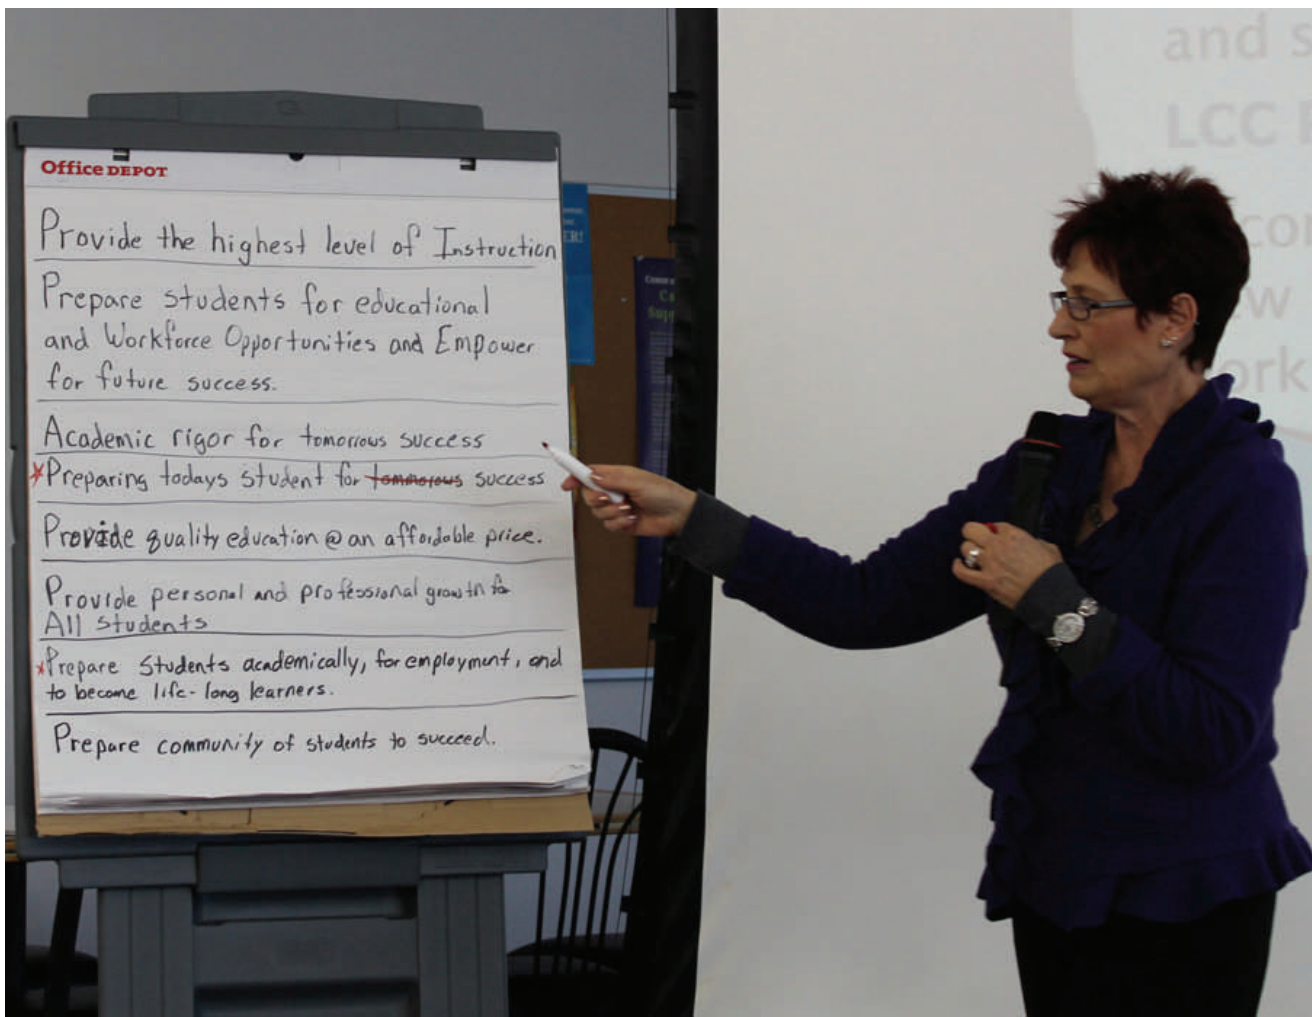 Office DEPOT
Provide the highest level of Instruction
Prepare students for educational
and Workforce Opportunities and Empower
for future success.
Academic rigor for tomorrows success
*Preparing todays student for tommorows success
Provide quality education @ an affordable price.
Provide personal and professional growth for
All students
*Prepare students academically, for employment, and
to become life-long learners.
Prepare community of students to succeed.
and s
LCC
ork